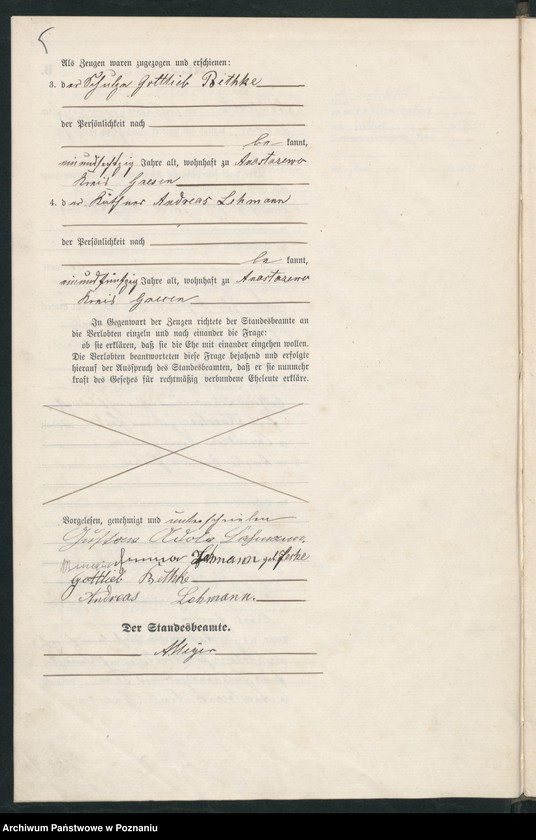 Als Zeugen waren zugezogen und erschienen:
3. der Schulze Gottlieb Bethke
der Persönlichkeit nach
be kannt,
einundsechzig Jahre alt, wohnhaft zu Anastazewo
Kreis Gnesen
4. der Käthner Andreas Lehmann
der Persönlichkeit nach
be kannt,
einundfünfzig Jahre alt, wohnhaft zu Anastazewo
Kreis Gnesen
In Gegenwart der Zeugen richtete der Standesbeamte an
die Verlobten einzeln und nach einander die Frage:
ob sie erklären, daß sie die Ehe mit einander eingehen wollen.
Die Verlobten beantworteten diese Frage bejahend und erfolgte
hierauf der Ausspruch des Standesbeamten, daß er sie nunmehr
kraft des Gesetzes für rechtmäßig verbundene Eheleute erkläre.
Vorgelesen, genehmigt und unterschrieben
Gustav Adolf Lehmann
Emma Lehmann geb
Gottlieb Bethke
Andreas Lehmann.
Der Standesbeamte.
Archiwum Państwowe w Poznaniu